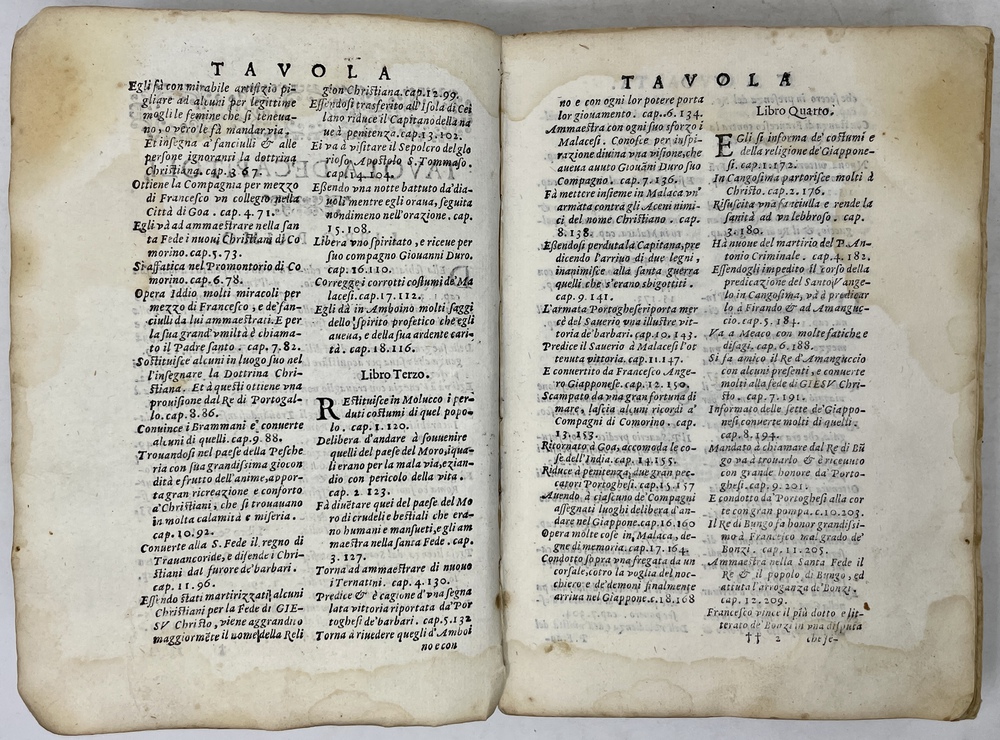 TAVOLA
Egli fà con mirabile artifizio pi-
gliare ad alcuni per legittime
mogli le femine che si teneua-
no, o vero le fà mandar via.
Et insegna a' fanciulli & alle
persone ignoranti la dottrina
Christiana. cap. 3 67.
Ottiene la Compagnia per mezzo
di Francesco vn collegio nella
Città di Goa. cap. 4. 71.
Egli và ad ammaestrare nella san
ta Fede i nuoui Christiani di Co
morino. cap. 5. 73.
Si affatica nel Promontorio di Co
morino. cap. 6. 78.
Opera Iddio molti miracoli per
mezzo di Francesco, e de' fan-
ciulli da lui ammaestrati. E per
la sua grand' vmiltà è chiama-
to il Padre santo. cap. 7. 82.
Sostituisce alcuni in luogo suo nel
l'insegnare la Dottrina Chri-
stiana. Et à questi ottiene vna
prouisione dal Re di Portogal-
lo. cap. 8. 86.
Conuince i Brammani e conuerte
alcuni di quelli. cap. 9. 88.
Trouandosi nel paese della Pesche
ria con sua grandissima giocon
dità e frutto dell'anime, appor-
ta gran ricreazione e conforto
a' Christiani, che si trouauano
in molta calamità e miseria.
cap. 10. 92.
Conuerte alla S. Fede il regno di
Trauancoride, e difende i Chri-
stiani dal furore de' barbari.
cap. 11. 96.
Essendo stati martirizzati alcuni
Christiani per la Fede di GIE-
SV Christo, viene aggrandito
maggiormẽte il nome della Reli
gion Christiana. cap. 12. 99.
Essendosi trasferito all'Isola di Cei
lano riduce il Capitano della na
ue à penitenza. cap. 13. 102.
Ei va à visitare il Sepolcro del glo
rioso Apostolo S. Tommaso.
cap. 14. 104.
Essendo vna notte battuto da' dia-
uoli mentre egli oraua, seguita
nondimeno nell'orazione. cap.
15. 108.
Libera vno spiritato, e riceue per
suo compagno Giouanni Duro.
cap. 16. 110.
Corregge i corrotti costumi de' Ma
lacesi. cap. 17. 112.
Egli dà in Amboino molti saggi
dello spirito profetico che egli
aueua, e della sua ardente cari-
tà. cap. 18. 116.
Libro Terzo.
REstituisce in Molucco i per-
duti costumi di quel popo-
lo. cap. 1. 120.
Delibera d'andare à souuenire
quelli del paese del Moro, i qua-
li erano per la mala via, ezian-
dio con pericolo della vita.
cap. 2. 123.
Fà diuẽtare quei del paese del Mo
ro di crudeli e bestiali che era-
no humani e mansueti, e gli am
maestra nella santa Fede. cap.
3. 127.
Torna ad ammaestrare di nuouo
i Ternatini. cap. 4. 130.
Predice & è cagione d'vna segna
lata vittoria riportata da' Por
toghesi de' barbari. cap. 5. 132
Torna à riuedere quegli d'Amboi
no e con
TAVOLA
no e con ogni lor potere porta
lor giouamento. cap. 6. 134.
Ammaestra con ogni suo sforzo i
Malacesi. Conosce per inspi-
razione diuina vna visione, che
aueua auuto Giouãni Duro suo
Compagno. cap. 7. 136.
Fà mettere insieme in Malaca vn'
armata contra gli Aceni nimi-
ci del nome Christiano. cap.
8. 138.
Essendosi perduta la Capitana, pre
dicendo l'arriuo di due legni,
inanimisce alla santa guerra
quelli che s'erano sbigottiti.
cap. 9. 141.
L'armata Portoghese riporta mer
cè del Sauerio vna illustre vit-
toria de' barbari. cap. 10. 143.
Predice il Sauerio à Malacesi l'ot
tenuta vittoria. cap. 11. 147.
E conuertito da Francesco Ange-
ro Giapponese. cap. 12. 150.
Scampato da vna gran fortuna di
mare, lascia alcuni ricordi a'
Compagni di Comorino. cap.
13. 153.
Ritornato à Goa, accomoda le co-
se dell'India. cap. 14. 155.
Riduce à penitenza due gran pec
catori Portoghesi. cap. 15. 157
Auendo à ciascuno de' Compagni
assegnati luoghi delibera d'an-
dare nel Giappone. cap. 16. 160
Opera molte cose in Malaca, de-
gne di memoria. cap. 17. 164.
Condotto sopra vna fregata da un
corsale, cotro la voglia del noc-
chiero e de' demoni finalmente
arriua nel Giappone. c. 18. 168
Libro Quarto.
EGli si informa de' costumi e
della religione de' Giappone-
si. cap. 1. 172.
In Cangosima partorisce molti à
Christo. cap. 2. 176.
Risuscita vna fanciulla e rende la
sanità ad vn lebbroso. cap.
3. 180.
Hà nuoue del martirio del P. An-
tonio Criminale. cap. 4. 182.
Essendogli impedito il corso della
predicazione del Santo Vange-
lo in Cangosima, và à predicar
lo à Firando & ad Amanguc-
cio. cap. 5. 184.
Va a Meaco con molte fatiche e
disagi. cap. 6. 188.
Si fa amico il Re d'Amanguccio
con alcuni presenti, e conuerte
molti alla fede di GIESV Chri-
sto. cap. 7. 191.
Informato delle sette de' Giappo-
nesi, conuerte molti di quelli.
cap. 8. 194.
Mandato à chiamare dal Re di Bũ
go va à trouarlo & è riceuuto
con grande honore da' Porto-
ghesi. cap. 9. 201.
E condotto da' Portoghesi alla cor
te con gran pompa. c. 10. 203.
Il Re di Bungo fa honor grandissi-
mo à Francesco mal grado de'
Bonzi. cap. 11. 205.
Ammaestra nella Santa Fede il
Re & il popolo di Bungo, ed
attuta l'arroganza de' Bonzi.
cap. 12. 209.
Francesco vince il più dotto e lit-
terato de' Bonzi in vna disputa
†† 2 che se-